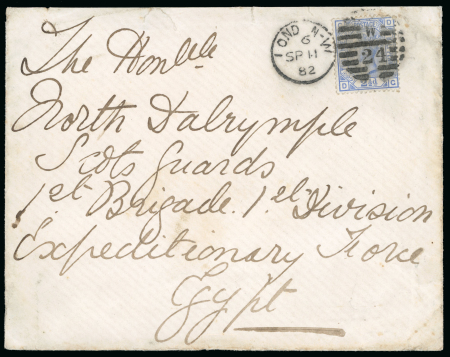 LONDON·N·W
6
SP 11
82
W
24
The Honble
North Dalrymple
Scots Guards
1st Brigade. 1st Division
Expeditionary Force
Egypt